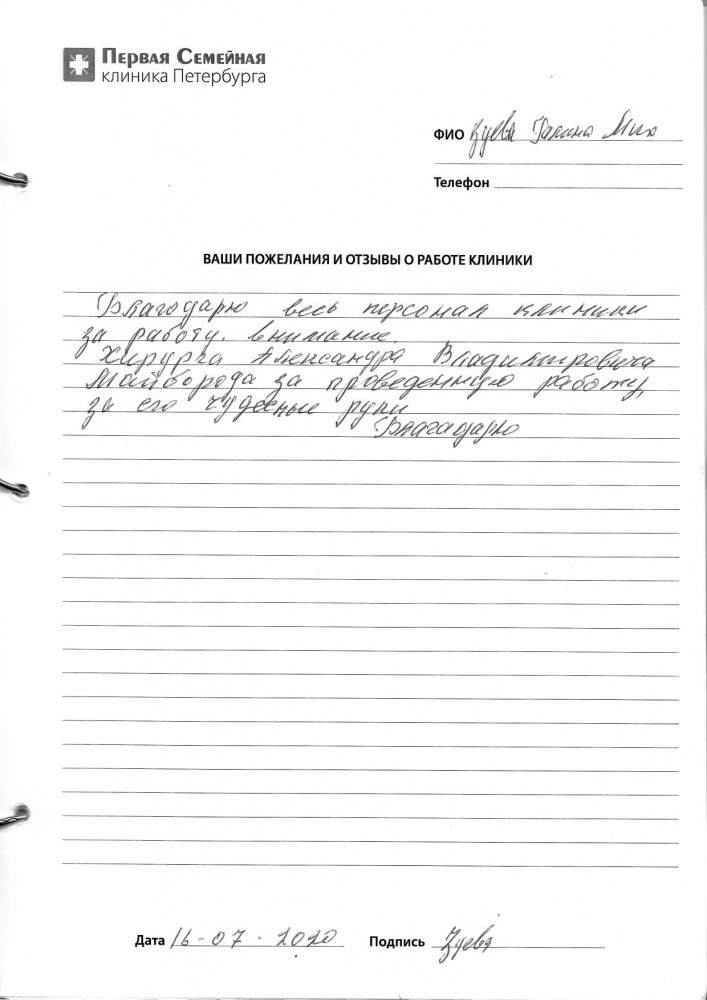 Первая Семейная
клиника Петербурга
ФИО Зуева Галина Мих
Телефон
ВАШИ ПОЖЕЛАНИЯ И ОТЗЫВЫ О РАБОТЕ КЛИНИКИ
Благодарю весь персонал клиники
за работу. внимание.
Хирурга Александра Владимировича
Майборода за проведенную работу,
за его чудесные руки
Благадарю
Дата 16-07-2020 Подпись Зуева